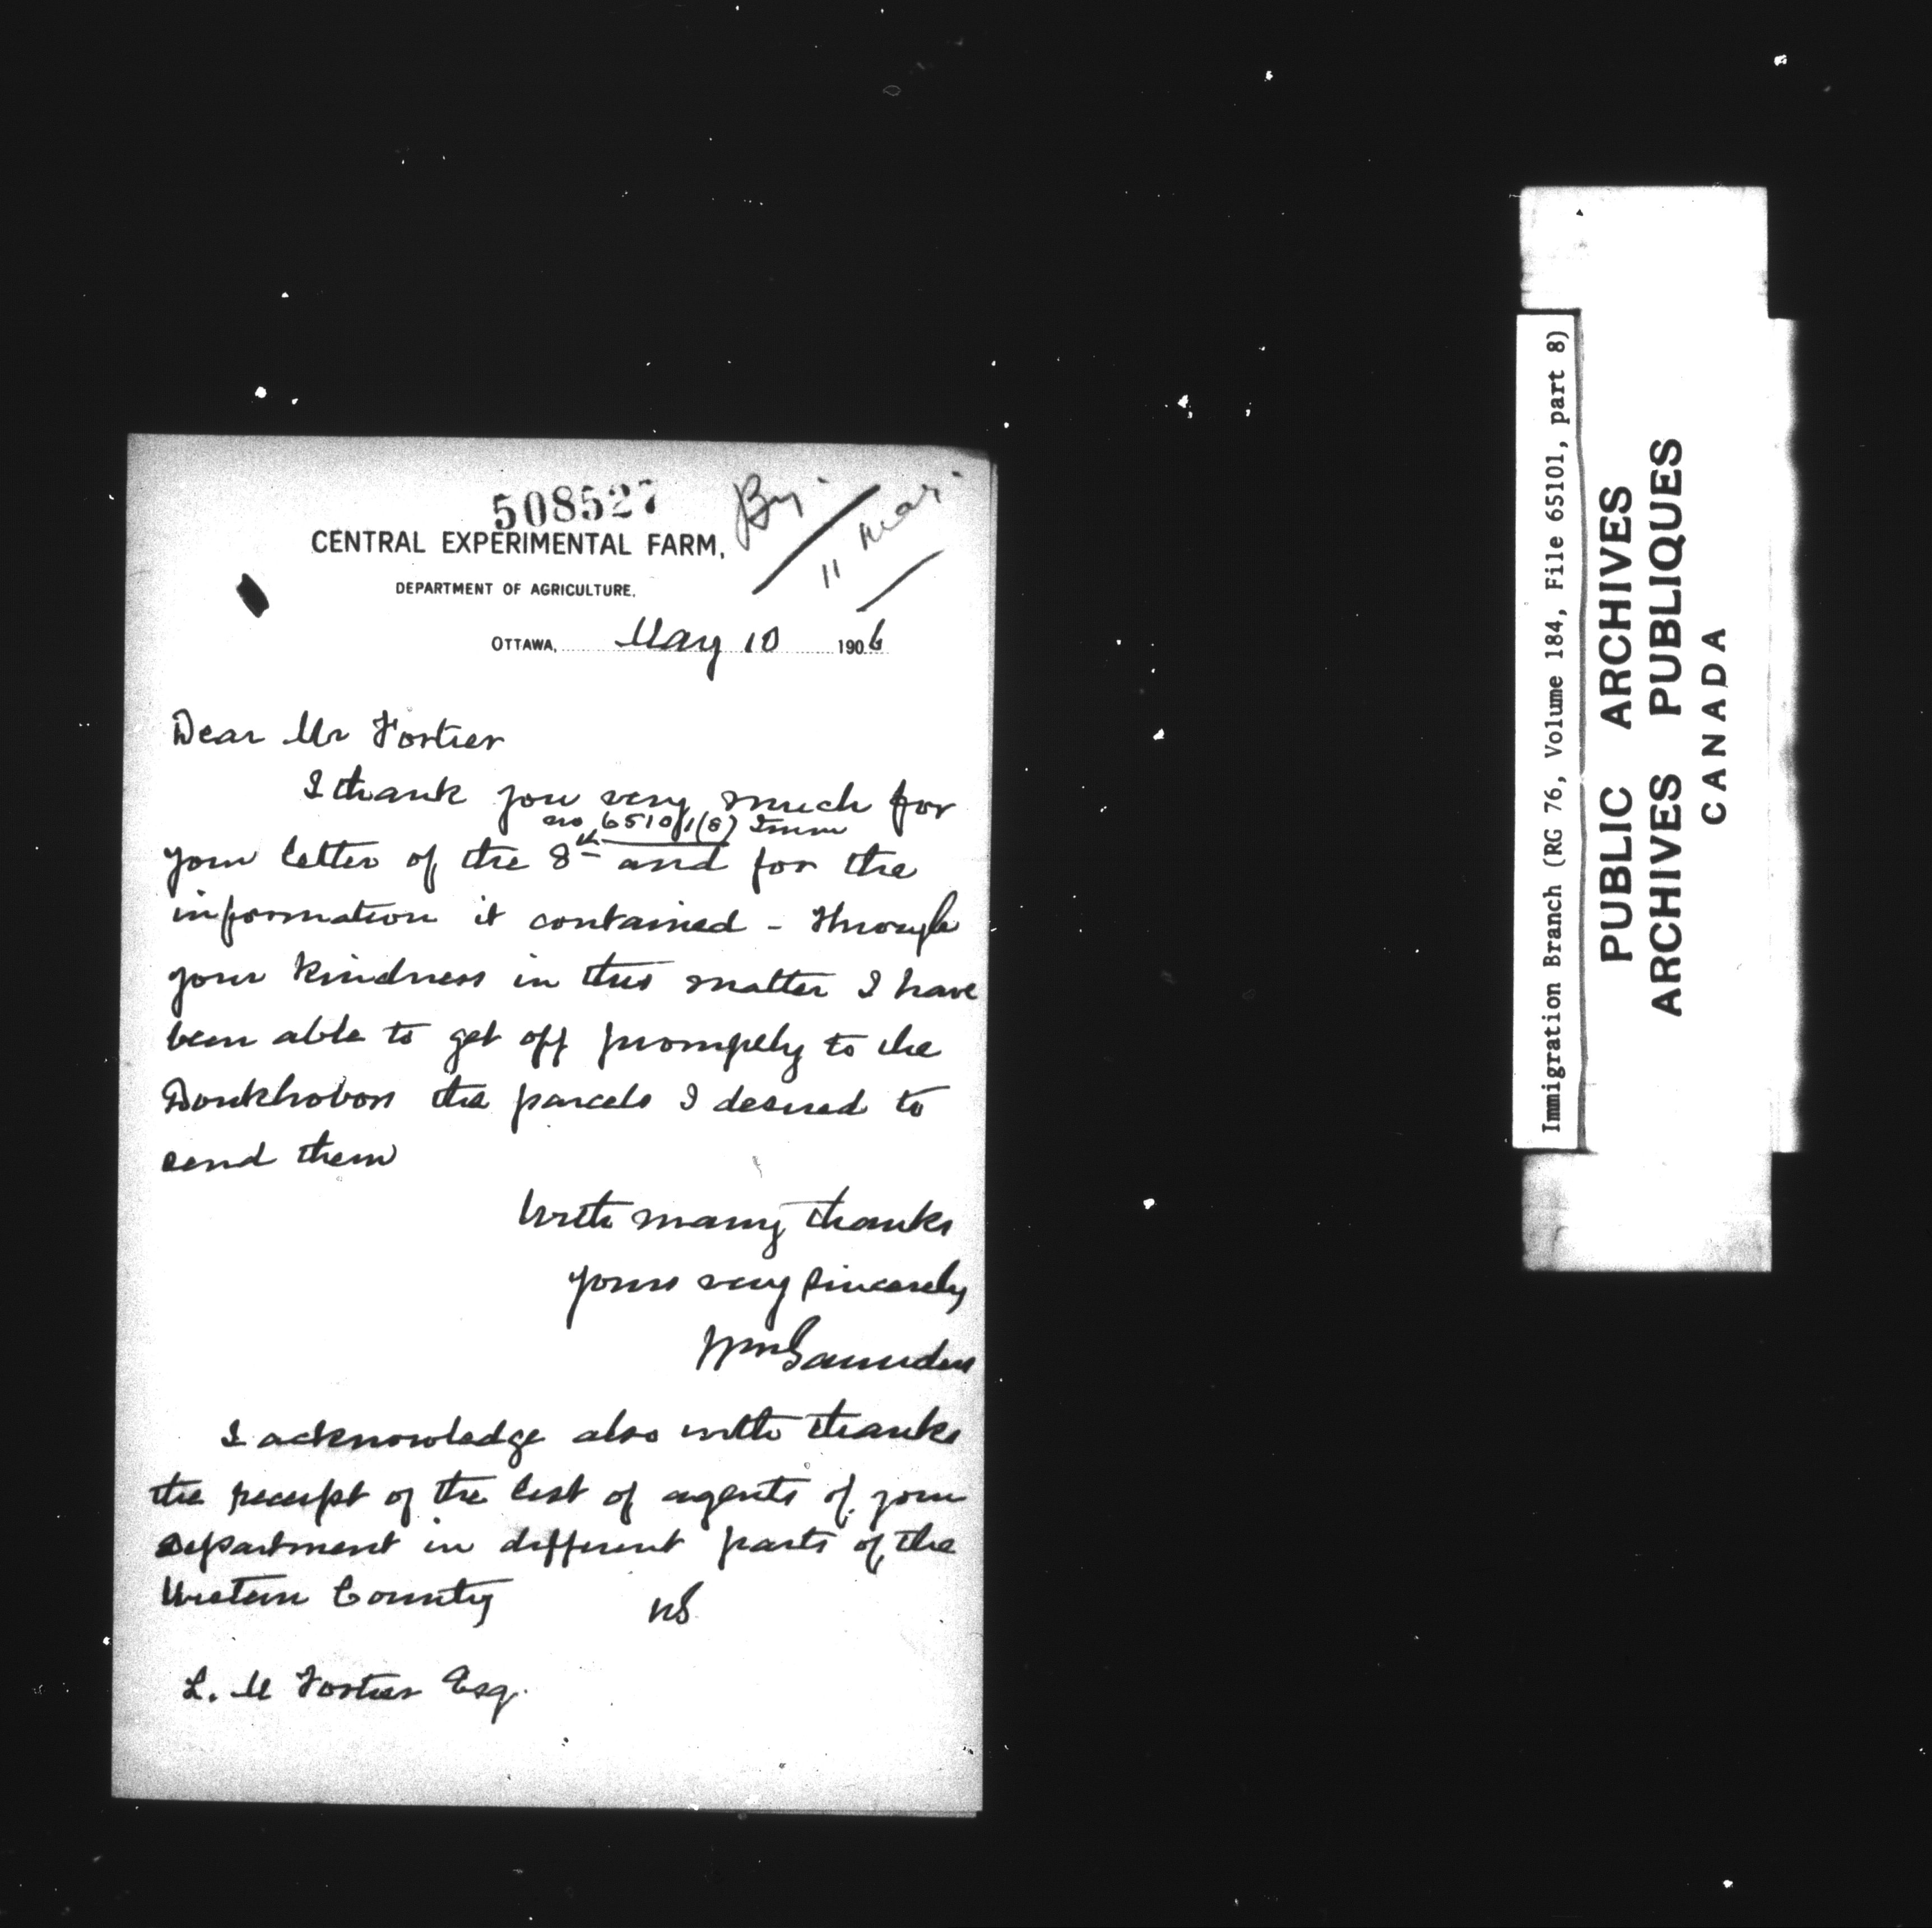 508527
CENTRAL EXPERIMENTAL FARM,
DEPARTMENT OF AGRICULTURE.
OTTAWA, May 10 1906
11
Dear Mr Fortier
I thank you very much for
no 65101(8) Imm
your letter of the 8th and for the
information it contained - Through
your kindness in this matter I have
been able to get off promptly to the
Doukhobors the parcels I desired to
send them
With many thanks
Yours very sincerely
Wm Saunders
I acknowledge also with thanks
the receipt of the list of agents of your
department in different parts of the
Western Country
WS
L. M Fortier Esq.
Immigration Branch (RG 76, Volume 184, File 65101, part 8)
PUBLIC ARCHIVES
ARCHIVES PUBLIQUES
CANADA